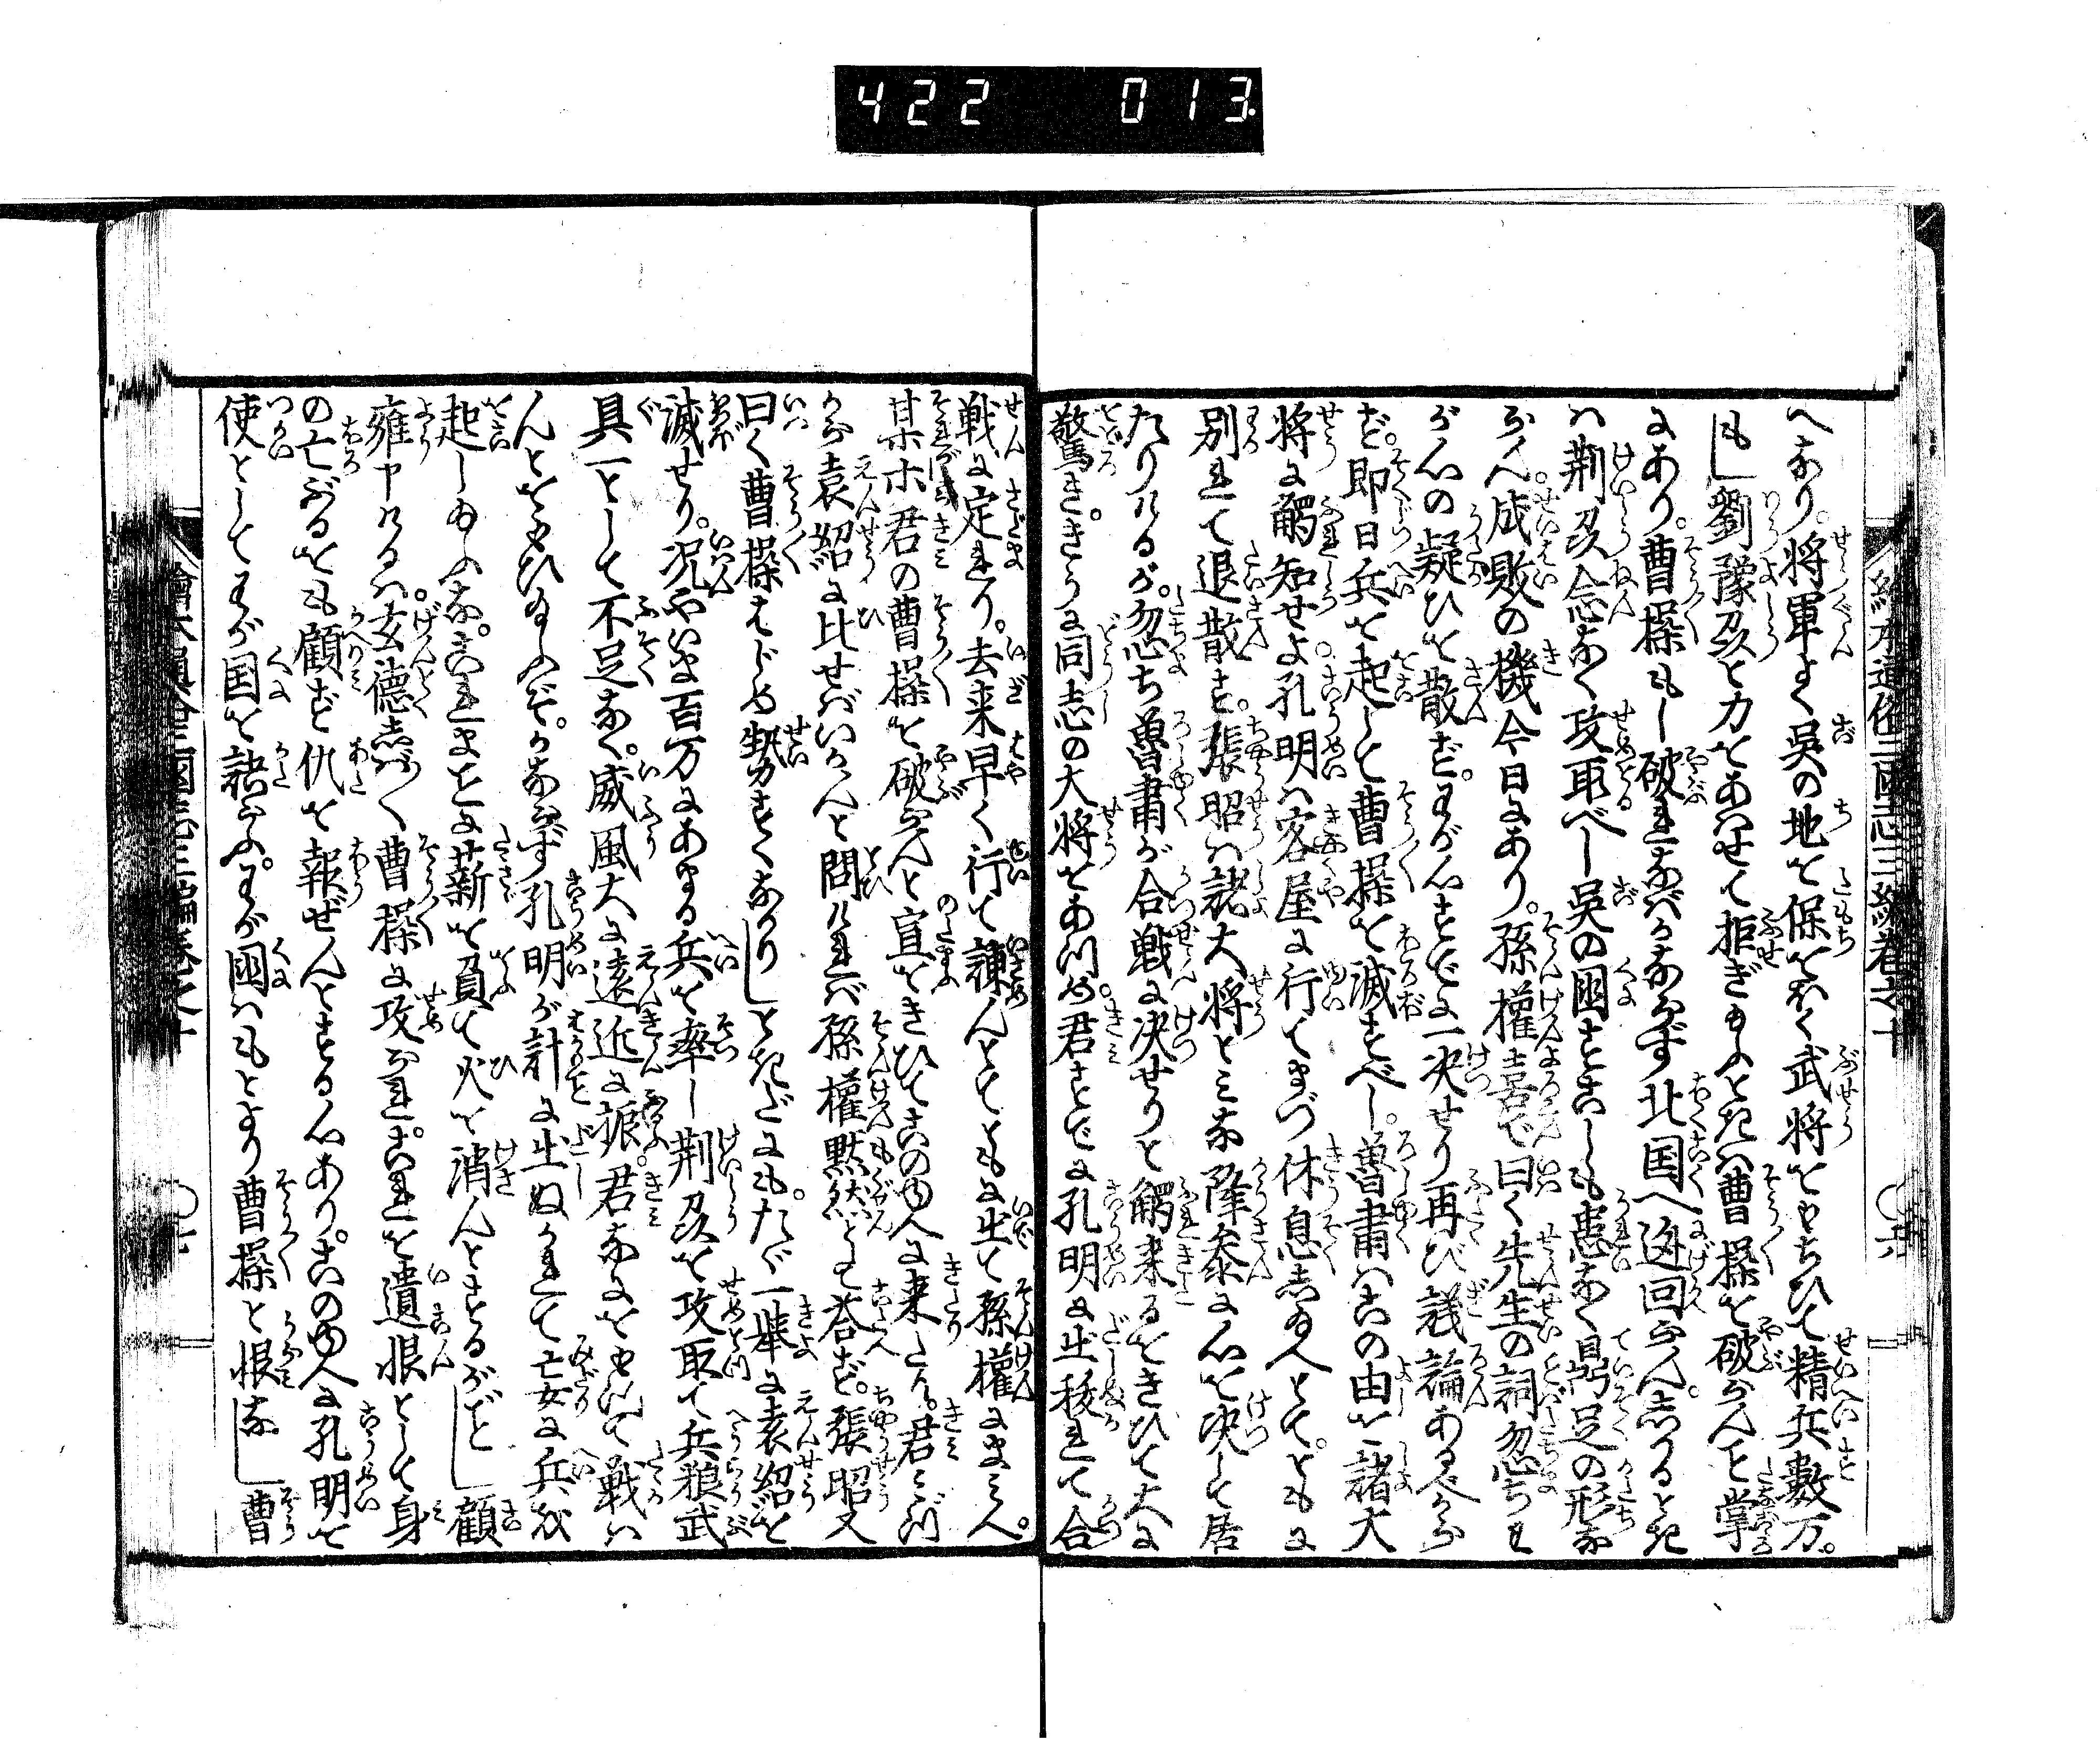 422 013
繪本通俗三國志三編巻之十
へなり。将軍よく呉の地を保をバく武将をもちひて精兵數万。
も」劉豫刕と力をあハせて拒ぎ玉ふときハ曹操を破らんと掌
にあり。曹操もし破れなバかならず北国へ迯回らん。しかるとき
ハ荆刕念なく攻取べし呉の国すこしも恙なく鼎足の形な
らん。成敗の機今日にあり。孫權喜で曰く先生の詞忽ちわ
が心の疑ひを散ず。わが心すでに一决せり再び議論あるべから
ず。即日兵を起して曹操を滅すべし。魯肅ハこの由を諸大
将に觸知せよ孔明ハ客屋に行てまづ休息し玉へとて。ともに
別れて退散す。張昭ハ諸大将とミな降参に心を决して居
たりけるが。忽ち魯肅が合戦に决せりと觸来るをきひて大に
驚き。きうに同志の大将をあつめ。君すでに孔明に出抜れて合
戦に定れり。去来早く行て諌んとてともに出て孫權にまミへ。
某ホ君の曹操を破らんと宣をきひてこの由人に来たる。君ミづ
から袁紹に比せバいかんと問けれバ孫權黙然として荅ず。張昭又
曰く曹操はじめ勢すくなかりしときだにも。たゞ一擧に袁紹を
滅せり。况やいま百万にあまる兵を率し荆刕を攻取て兵粮武
具一として不足なく。威風大に遠近に振。君なにをもつて戦ハ
んとをもひ玉ふぞ。かならず孔明が計に出ぬかれて妄に兵を
起し玉ふな。これまことに薪を負て火を消んとするがごと」顧
雍申けるハ。玄德しバ〱曹操に攻られ。これを遺恨として身
の亡ぶるをも顧ず仇を報ぜんとする心あり。この由人に孔明を
使としてわが国を誘ふ。わが国ハもとより曹操と恨な」曹